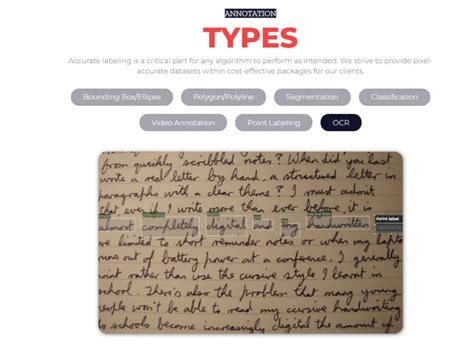 ANNOTATION
TYPES
Accurate labeling is a critical part for any algorithm to perform as intended. We strive to provide pixel-
accurate datasets within cost-effective packages for our clients.
Bounding Box/Ellipse
Polygon/Polyline
Segmentation
Classification
Video Annotation
Point Labeling
OCR
from quickly scribbled notes? When did you last
write a real letter by hand, a structured letter in
paragraphs with a clear theme? I must admit
that even if I write more than ever before, it is
Point label
almost completely digital and my handwritten
are limited to short reminder notes or when my lapto
runs out of battery power at a conference. I generally
print rather than use the cursive style I learnt in
school. There's also the problem that many young
people won't be able to read my cursive handwriting
to schools become increasingly digital the amount of